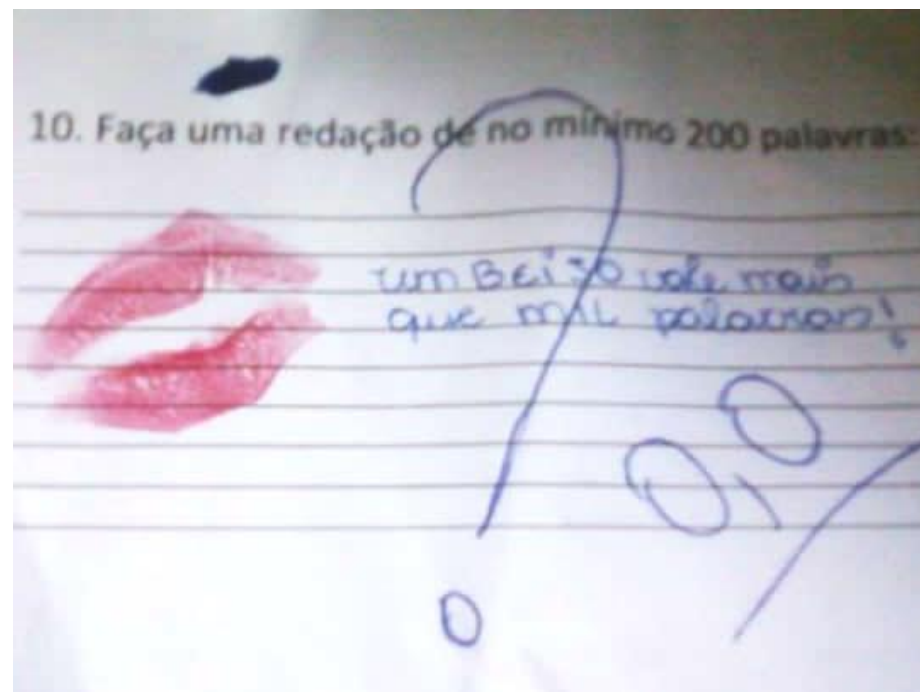 10. Faça uma redação de no mínimo 200 palavras:
um BEiJO vale mais
que miL palavras!
0,0